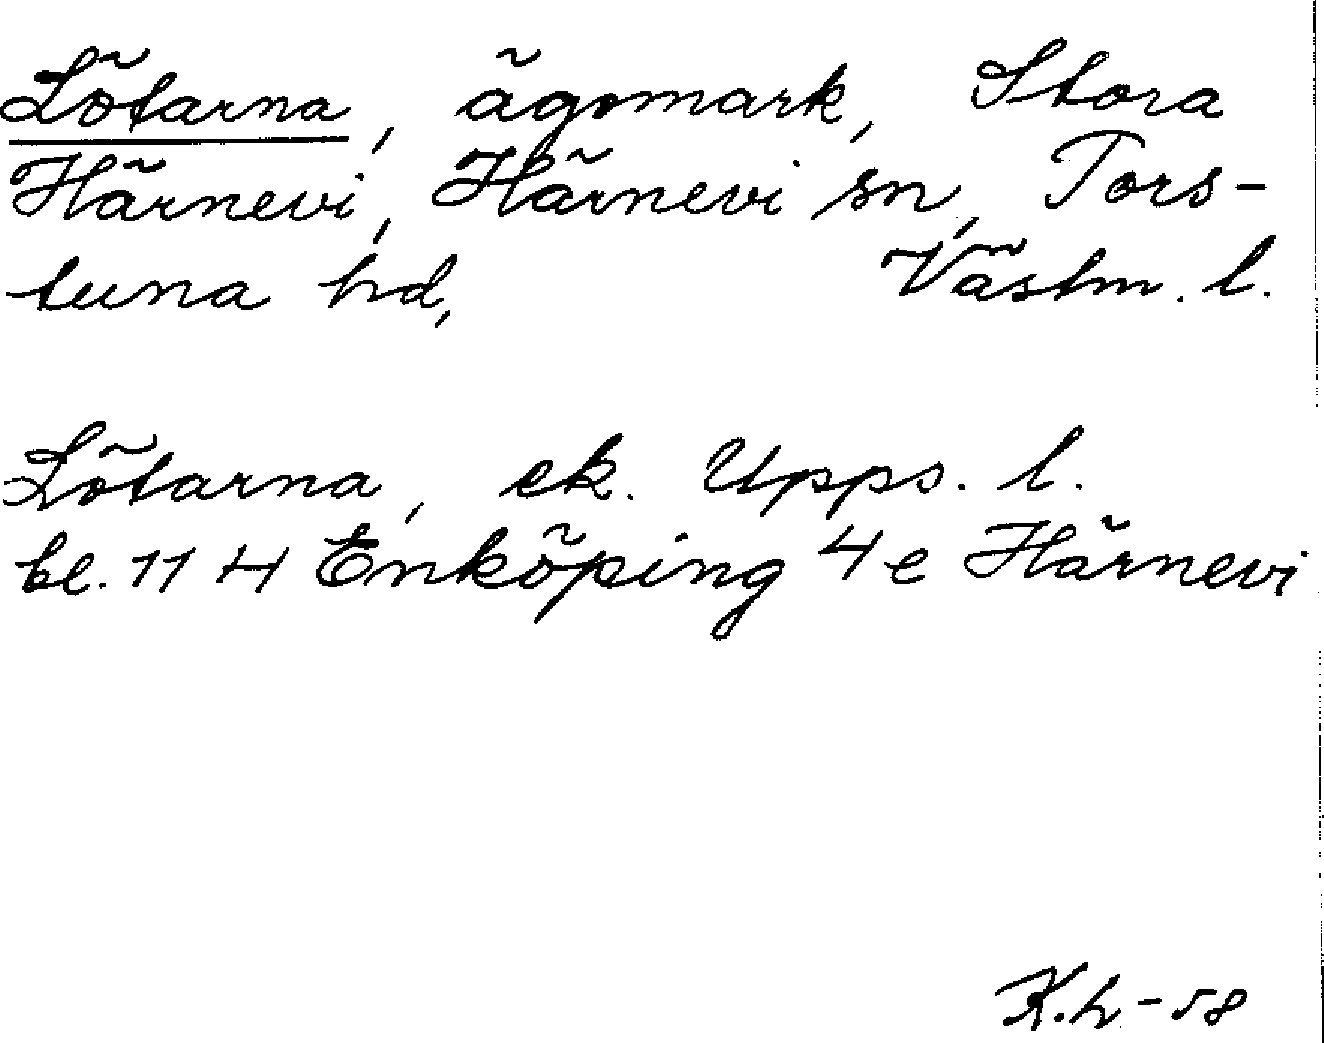 Lötarna, ägomark, Stora
Härnevi, Härnevi sn, Tors-
tuna hd, Västm. l.
Lötarna, ek. Upps. l.
bl. 11 H Enköping 4 e Härnevi
K.L-58